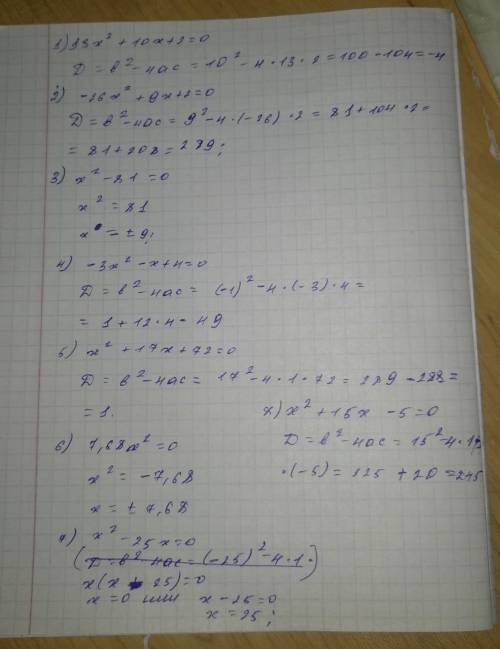 1) 13x² + 10x + 2 = 0
D = b² - 4ac = 10² - 4 · 13 · 2 = 100 - 104 = -4
2) -26x² + 9x + 2 = 0
D = b² - 4ac = 9² - 4 · (-26) · 2 = 81 + 104 · 2 =
= 81 + 208 = 289;
3) x² - 81 = 0
x² = 81
x = ± 9;
4) -3x² - x + 4 = 0
D = b² - 4ac = (-1)² - 4 · (-3) · 4 =
= 1 + 12 · 4 = 49
5) x² + 17x + 72 = 0
D = b² - 4ac = 17² - 4 · 1 · 72 = 289 - 288 =
= 1.
6) 7,68x² = 0
x² = -7,68
x = ± 7,68
7) x² - 25x = 0
(D = b² - 4ac = (-25)² - 4 · 1 · )
x(x - 25) = 0
x = 0 или x - 25 = 0
x = 25;
x² + 15x - 5 = 0
D = b² - 4ac = 15² - 4 · 1 ·
· (-5) = 225 + 20 = 245